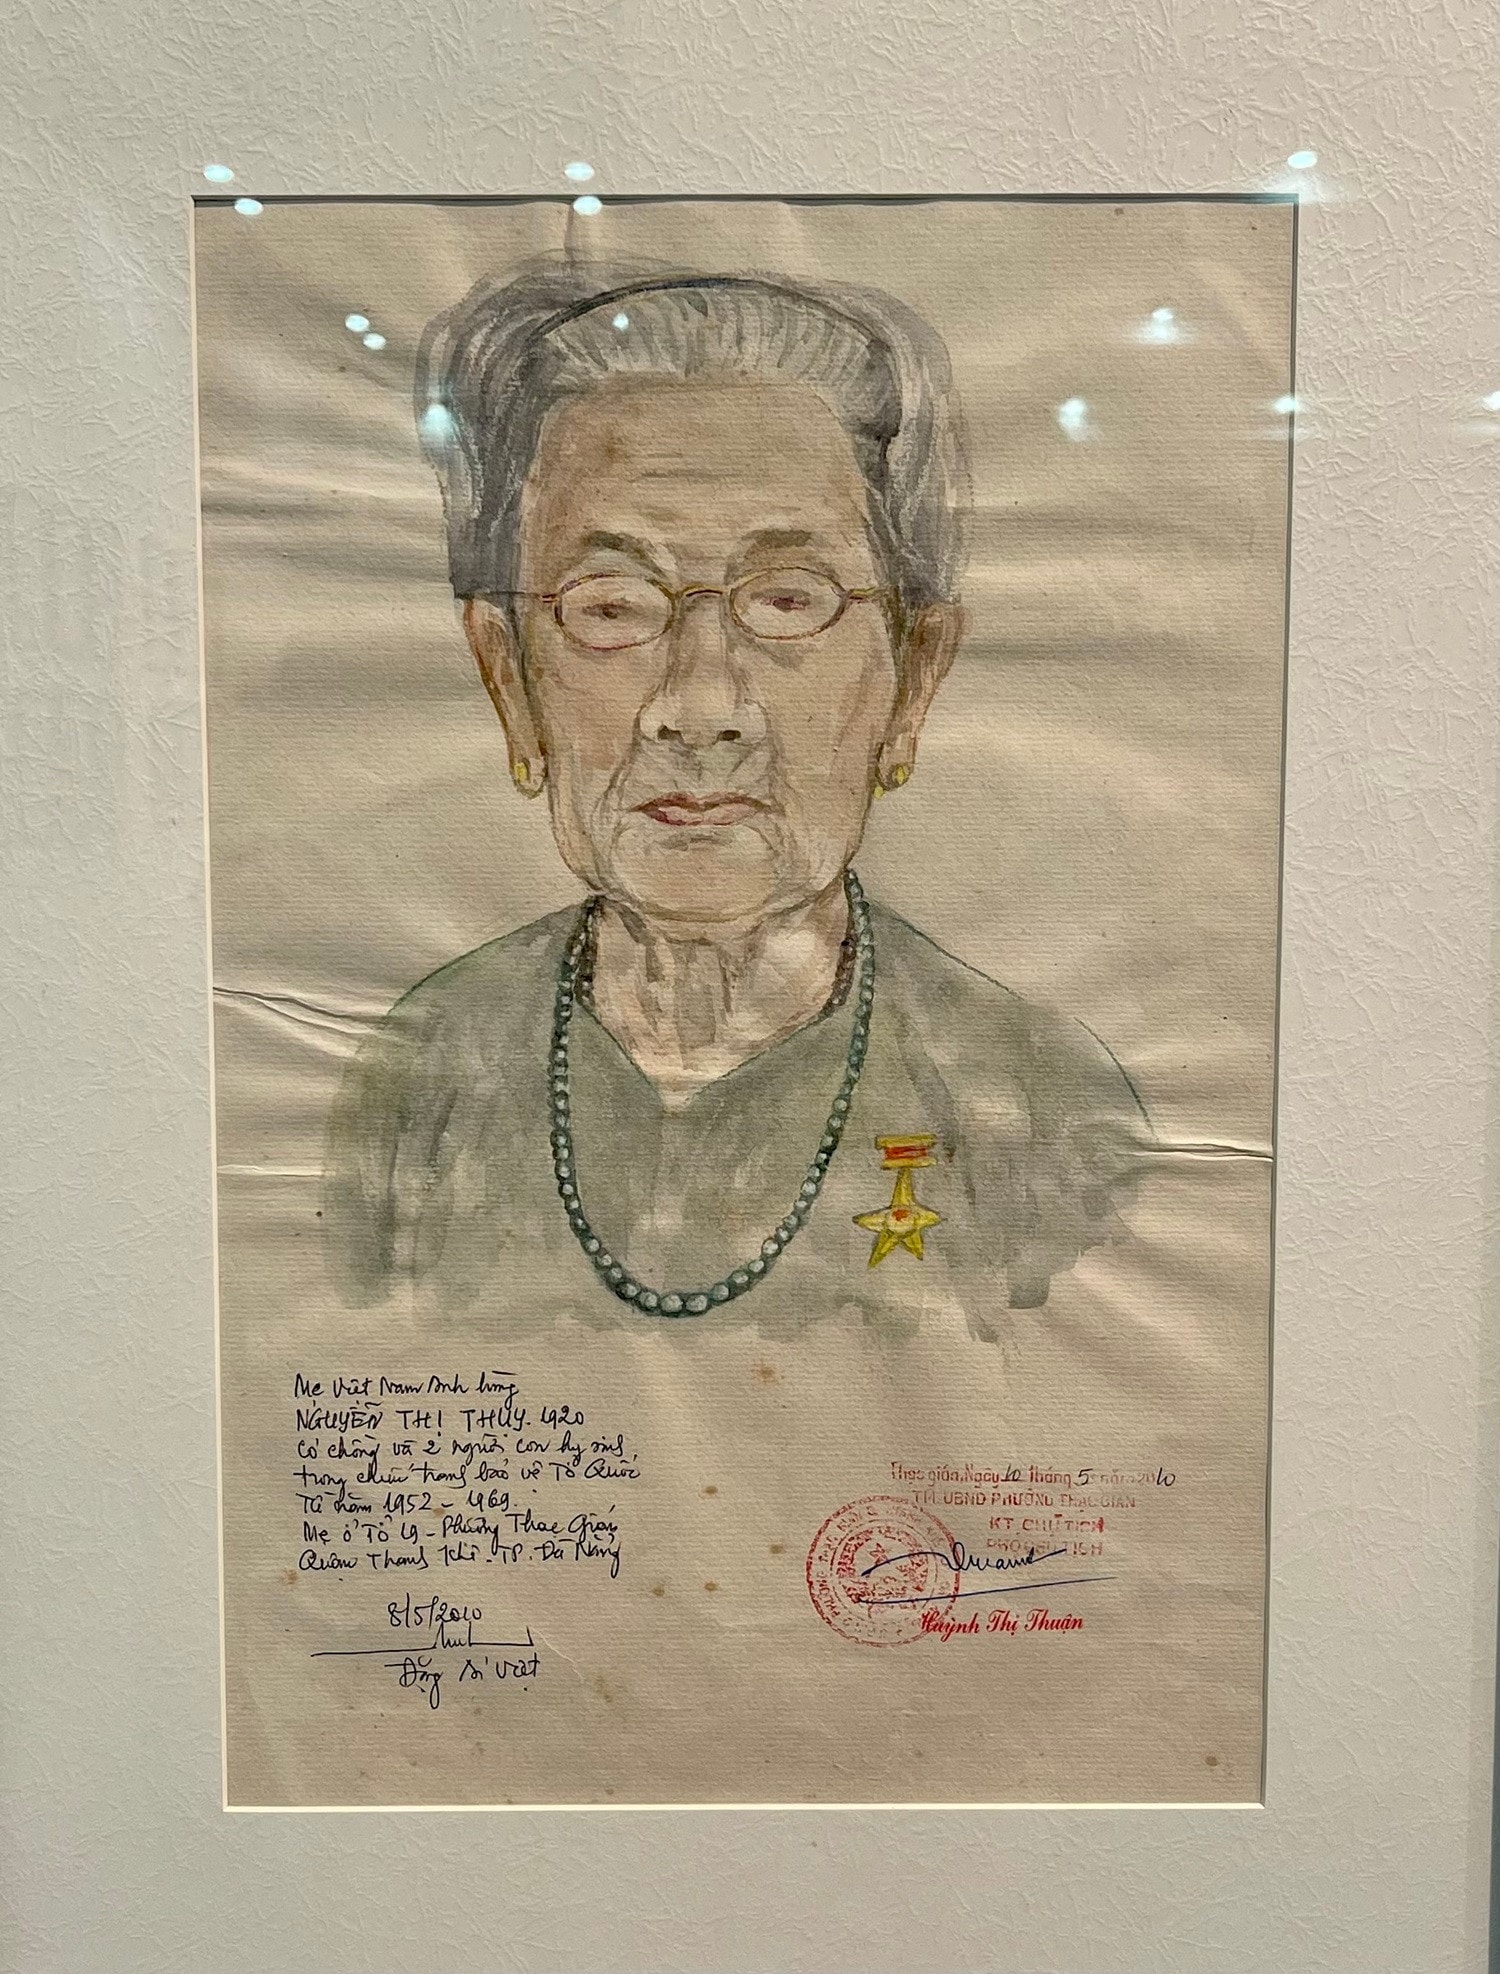 Mẹ Việt Nam Anh hùng
NGUYỄN THỊ THUY. 1920
có chồng và 2 người con hy sinh
trong chiến tranh bảo vệ Tổ Quốc
Từ năm 1952 - 1969.
Mẹ ở Tổ 19 - Phường Thạc Gián
Quận Thanh Khê - TP. Đà Nẵng
8/5/2010
Đặng Ái Việt
Thạc gián, Ngày 10 tháng 5 năm 2010
TM. UBND PHƯỜNG THẠC GIÁN
KT. CHỦ TỊCH
PHÓ CHỦ TỊCH
Huỳnh Thị Thuận